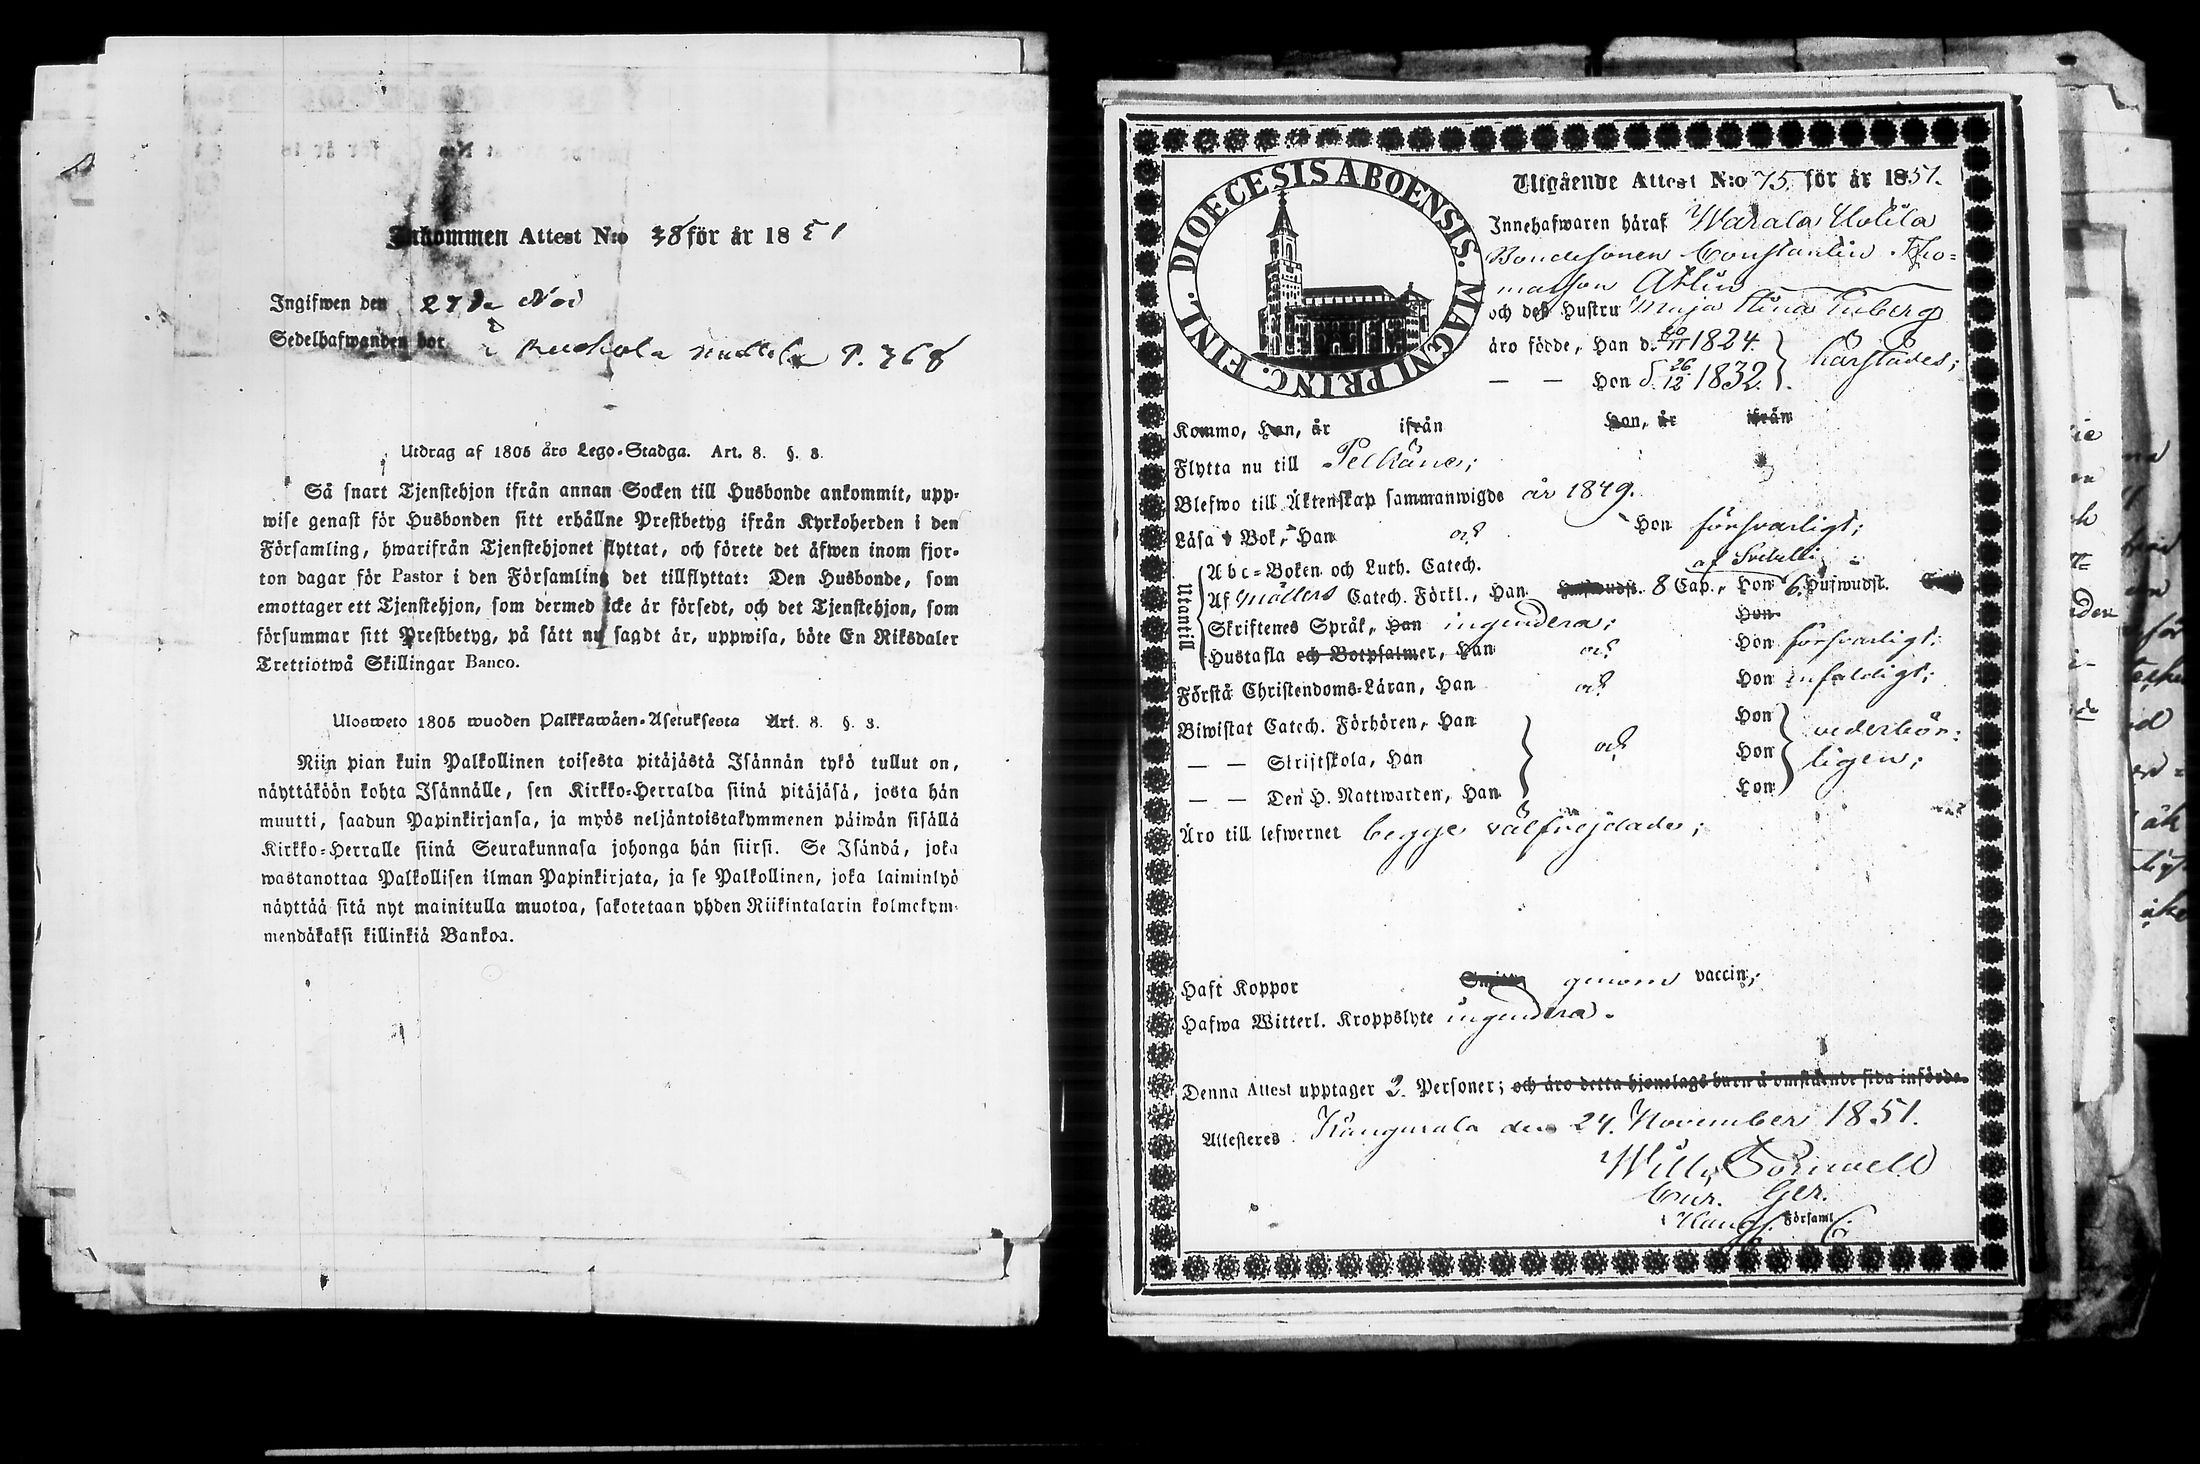 Inkommen Attest N:o 38 för år 1851
Ingifwen den 27de Nov
Sedelhafwanden bor i P. 368
Utdrag af 1805 års Lego-Stadga. Art. 8. §. 3.
Så snart Tjenstehjon ifrån annan Socken till Husbonde ankommit, upp-
wise genast för Husbonden sitt erhållne Prestbetyg ifrån Kyrkoherden i den
Församling, hwarifrån Tjenstehjonet flyttat, och förete det äfwen inom fjor-
ton dagar för Pastor i den Församling det tillflyttat: Den Husbonde, som
emottager ett Tjenstehjon, som dermed icke är försedt, och det Tjenstehjon, som
försummar sitt Prestbetyg, på sätt nu sagdt är, uppwisa, böte En Riksdaler
Trettiotwå Skillingar Banco.
Ulosweto 1805 wuoden Palkkawäen-Asetuksesta Art. 8. §. 3.
Niin pian kuin Palkollinen toisesta pitäjästä Isännän tykö tullut on,
näyttäköön kohta Isännälle, sen Kirkko-Herralda siinä pitäjäsä, josta hän
muutti, saadun Papinkirjansa, ja myös neljäntoistakymmenen päiwän sisällä
Kirkko-Herralle siinä Seurakunnasa johonga hän siirsi. Se Isändä, joka
wastanottaa Palkollisen ilman Papinkirjata, ja se Palkollinen, joka laiminlyö
näyttää sitä nyt mainitulla muotoa, sakotetaan yhden Riikintalarin kolmekym-
mendäkaksi killinkiä Bankoa.
DIOECESIS ABOENSIS. MAGNI PRINC. FINL.
Utgående Attest N:o 75. för år 1851.
Innehafwaren häraf Warala Kolila
Bondesonen Constantin Tho-
masson Ahlin
och dess Hustru Maja Stina Tuberg
äro födde, Han d. 20/11 1824. } härstädes;
— — Hon d. 26/12 1832 }
Kommo, Han, år ifrån Hon, år ifrån
Flytta nu till Pelkäne;
Blefwo till Äktenskap sammanwigde år 1849.
Läsa i Bok, Han och Hon försvarligt;
Utantill
Abc-Boken och Luth. Catech. af Svebelii
Af Möllers Catech. Förkl., Han 8 Cap., Hon 6. Hufwudst.
Skriftenes Språk, Han ingendera; Hon
Hustafla och Botpsalmer, Han och Hon försvarligt:
Förstå Christendoms-Läran, Han och Hon enfaldigt;
Biwistat Catech. Förhören, Han Hon
— — Skriftskola, Han och Hon vederbör-
ligen;
— — Den H. Nattwarden, Han Hon
Äro till lefwernet begge välfrejdade;
Haft Koppor genom vaccin;
Hafwa Witterl. Kroppslyte ingendera.
Denna Attest upptager 2. Personer; och äro detta hjonelags barn å omstående sida införde.
Attesteres Kangasala den 24. November 1851.
Församl.